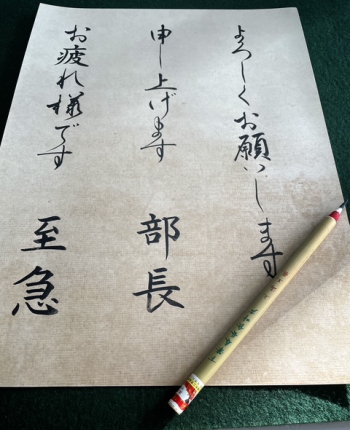 よろしくお願いします
申し上げます 部長
お疲れ様です 至急